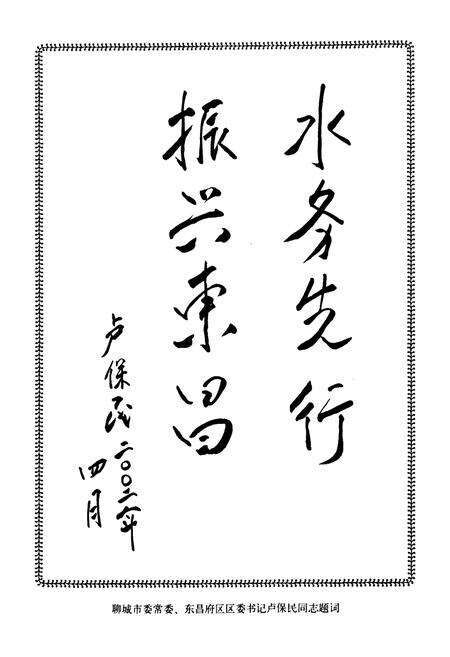 水务先行
振兴东昌
卢保民二〇〇二年
四月
聊城市委常委、东昌府区区委书记卢保民同志题词